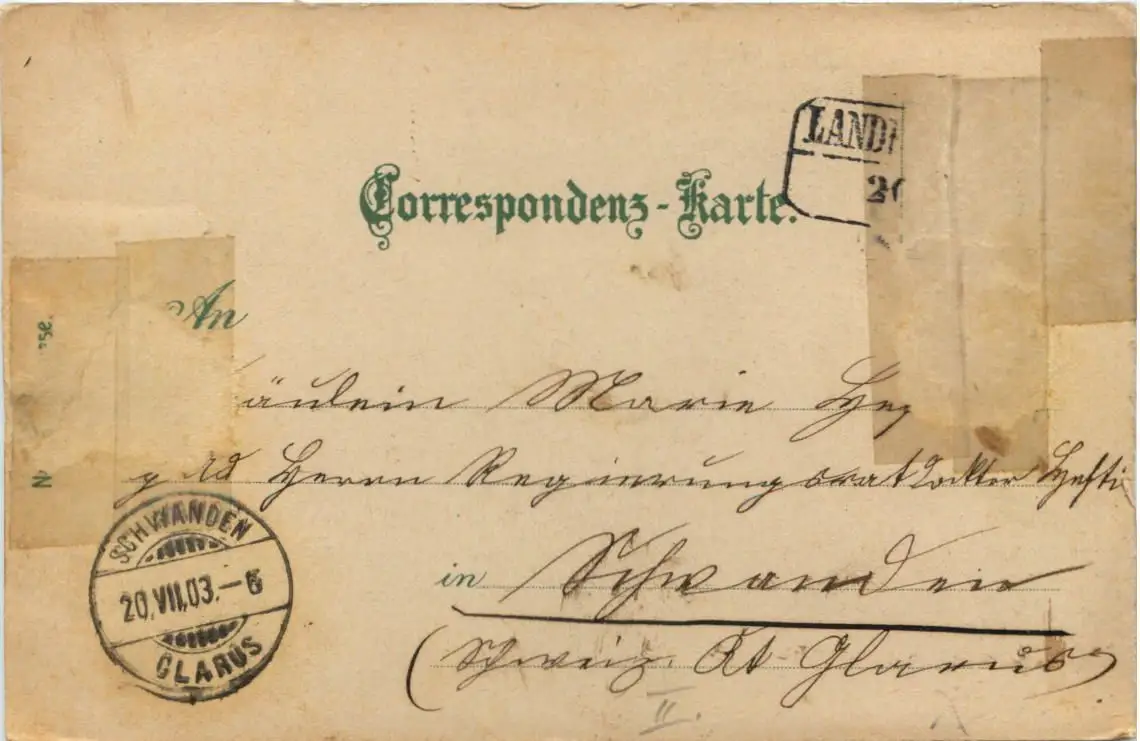 LAND
20
Correspondenz-Karte.
An
äulein Marie
Herrn Regierungsrat Hefti
in Schwanden
(Schweiz. Kt. Glarus)
II.
SCHWANDEN
20.VII.03.-6
GLARUS
se.
N